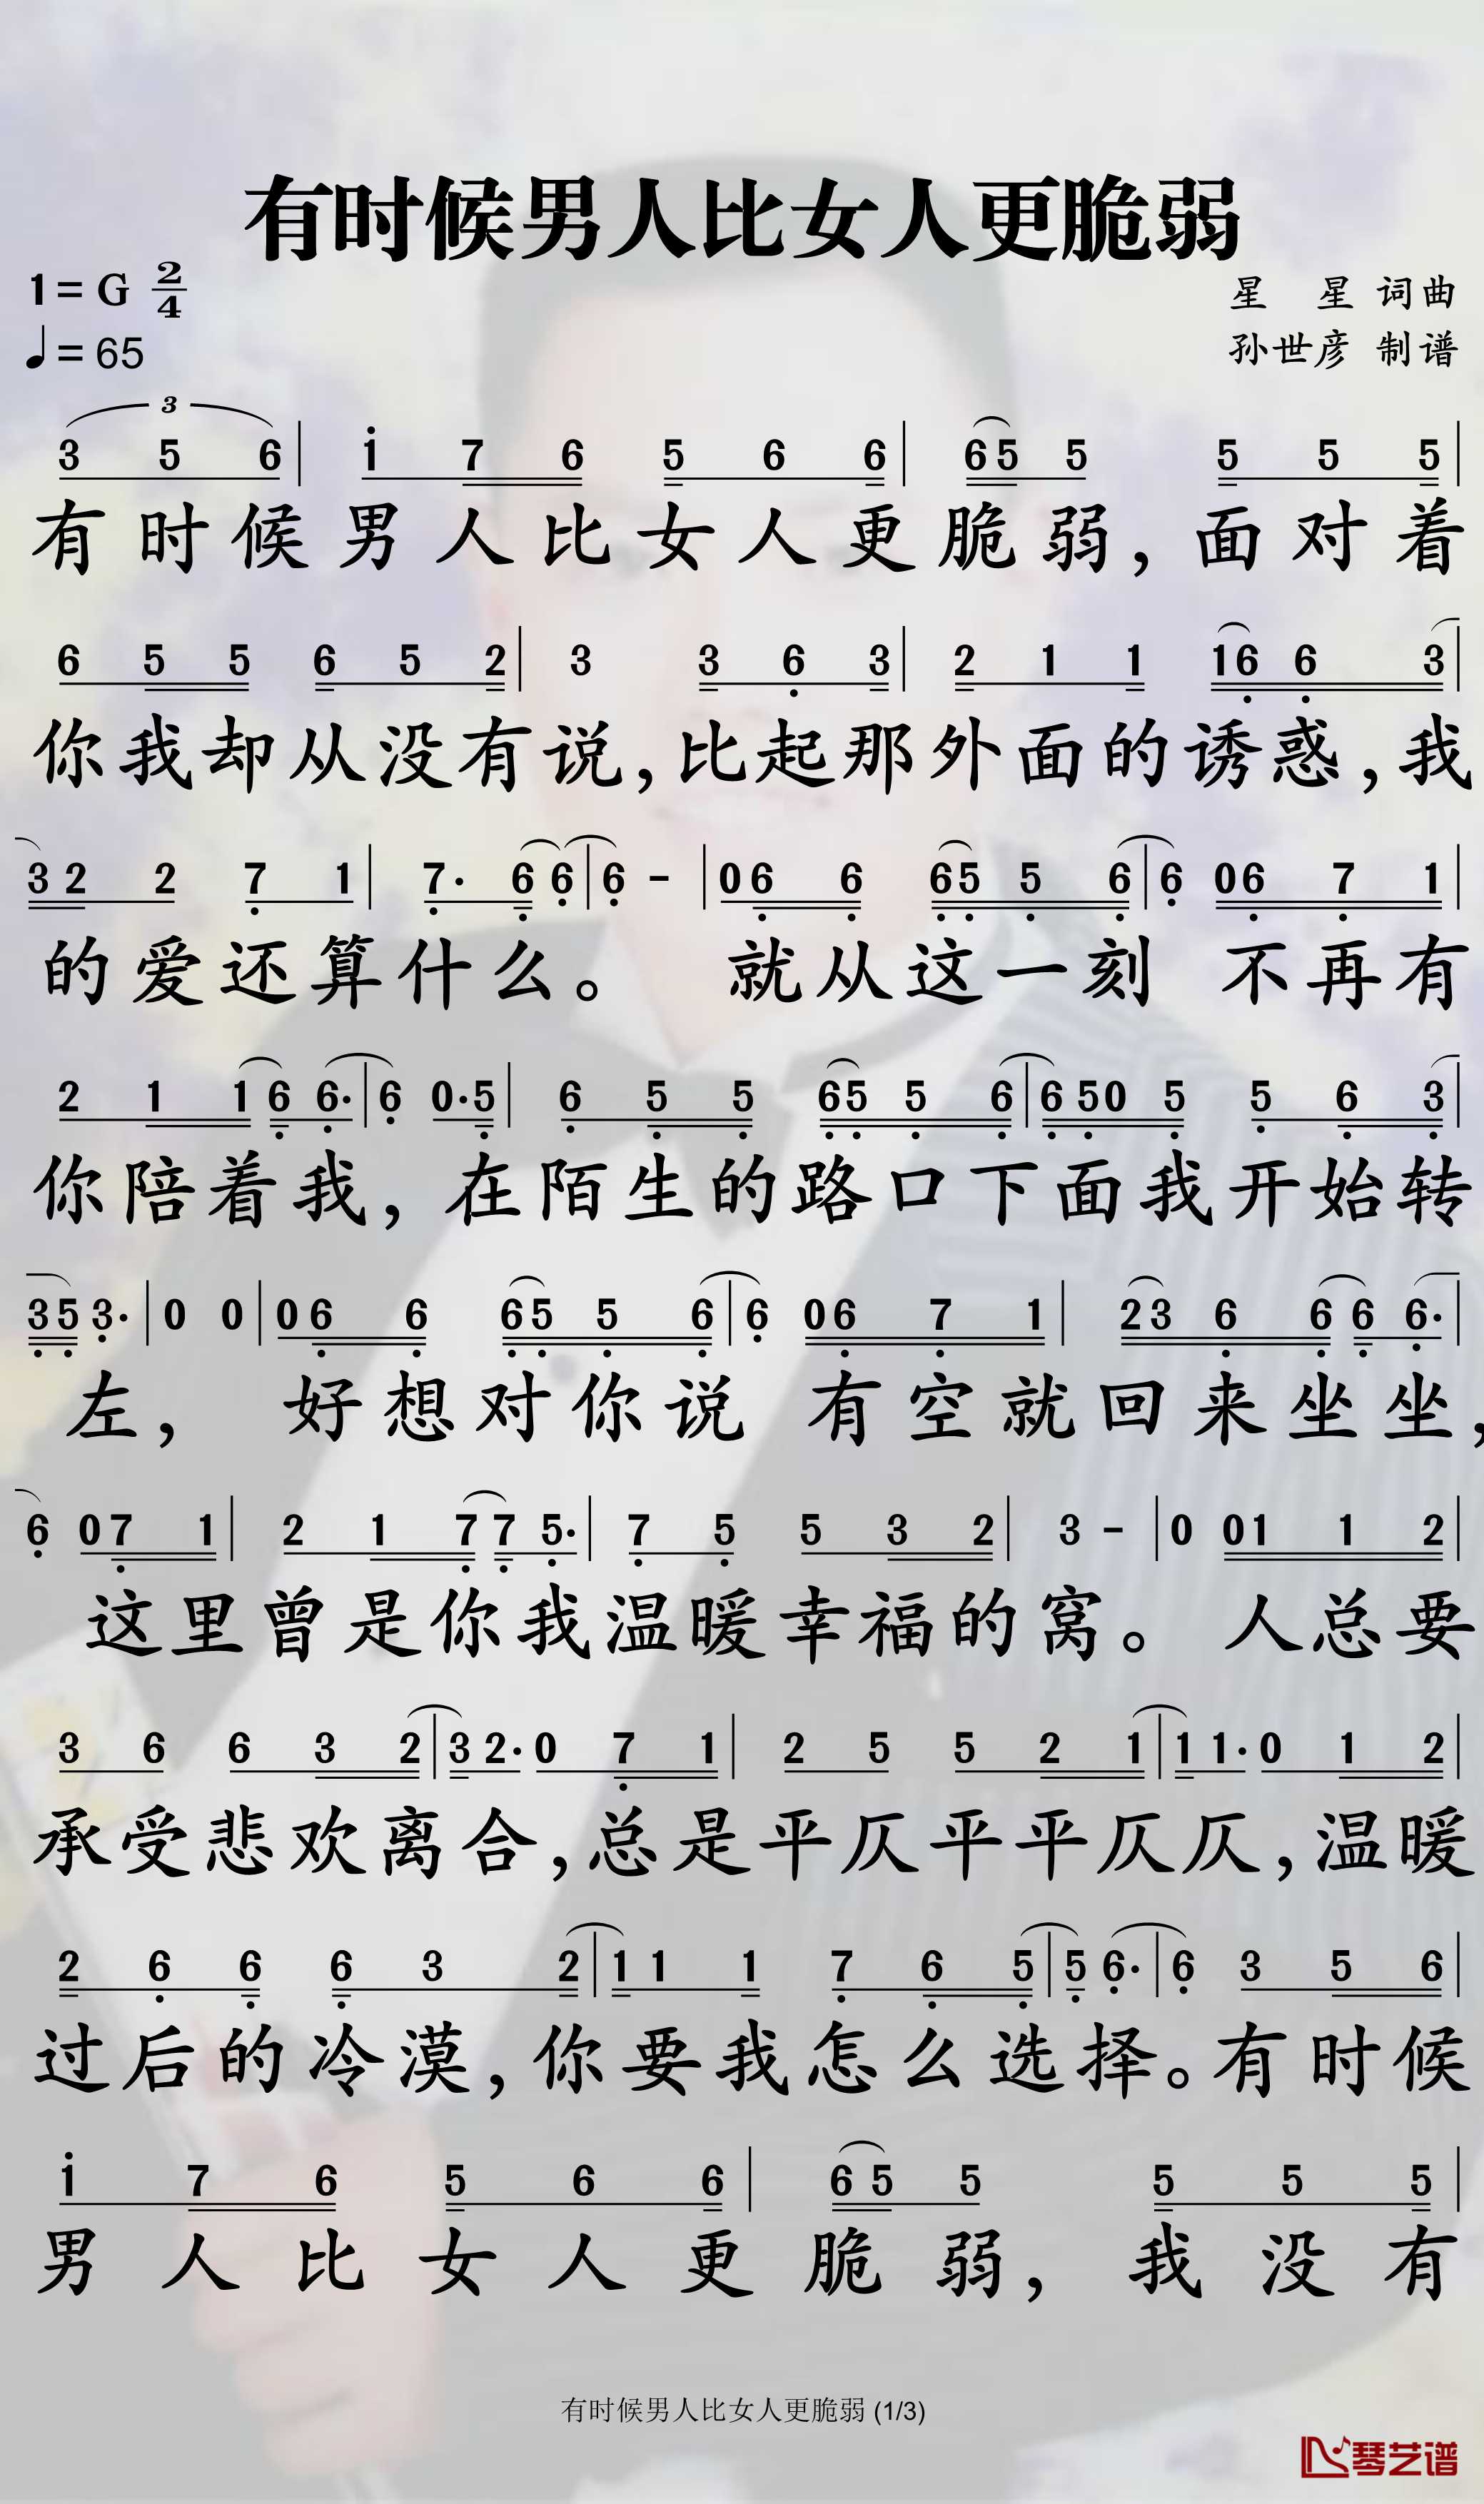 有时候男人比女人更脆弱
1= G 2/4
星 星 词曲
♩= 65
孙世彦 制谱
3
3 5 6 | 1 7 6 5 6 6 | 6 5 5 5 5 5 |
有时候男人比女人更脆弱，面对着
6 5 5 6 5 2 | 3 3 6 3 | 2 1 1 1 6 6 3 |
你我却从没有说，比起那外面的诱惑，我
3 2 2 7 1 | 7· 6 6 | 6 - | 0 6 6 6 5 5 6 | 6 0 6 7 1 |
的爱还算什么。 就从这一刻 不再有
2 1 1 6 6· | 6 0· 5 | 6 5 5 6 5 5 6 | 6 5 0 5 5 6 3 |
你陪着我，在陌生的路口下面我开始转
3 5 3· | 0 0 | 0 6 6 6 5 5 6 | 6 0 6 7 1 | 2 3 6 6 6 6· |
左， 好想对你说 有空就回来坐坐，
6 0 7 1 | 2 1 7 7 5· | 7 5 5 3 2 | 3 - | 0 0 1 1 2 |
这里曾是你我温暖幸福的窝。 人总要
3 6 6 3 2 | 3 2· 0 7 1 | 2 5 5 2 1 | 1 1· 0 1 2 |
承受悲欢离合，总是平仄平平仄仄，温暖
2 6 6 6 3 2 | 1 1 1 7 6 5 | 5 6· | 6 3 5 6 |
过后的冷漠，你要我怎么选择。有时候
1 7 6 5 6 6 | 6 5 5 5 5 5 |
男人比女人更脆弱，我没有
有时候男人比女人更脆弱 (1/3)
琴艺谱